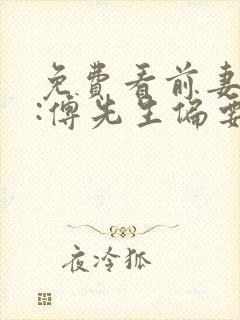 免费看前妻
:傅先生偏要
夜冷狐